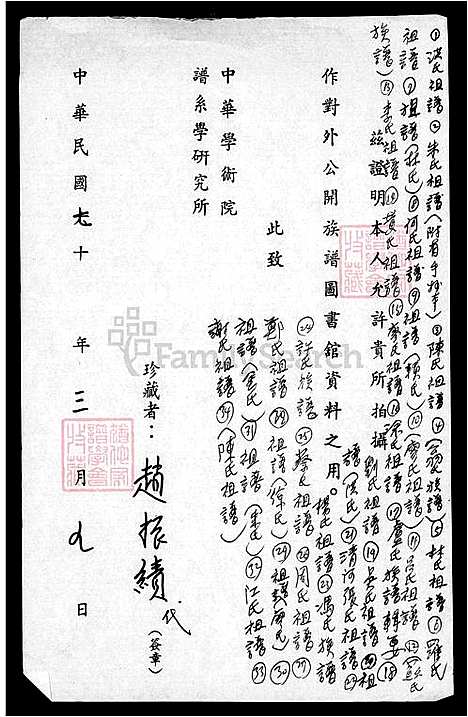 ①洪氏祖譜②朱氏祖譜(附有手抄本)③陳氏祖譜④(翁氏族譜)⑤林氏祖譜⑥羅氏
祖譜⑦祖譜(林氏)⑧何氏祖譜⑨祖譜(賴氏)⑩廖氏祖譜⑪呂氏祖譜⑫
族譜⑬李氏祖譜⑭黃氏祖譜
盧氏族譜輯要⑱
茲證明本人允許貴所拍攝
劉氏祖譜⑲吳氏祖譜⑳祖
譜(洪氏)㉑清河張氏祖譜
作對外公開族譜圖書館資料之用。
楊氏祖譜㉓馮氏族譜
㉔許氏族譜㉕蔡氏祖譜㉖周氏祖譜㉗
此致
鄭氏祖譜㉘祖譜(徐氏)㉙祖譜
㉚
祖譜㉛
㉜江氏祖譜㉝
謝氏祖譜㉞(陳氏祖譜)
中華學術院
譜系學研究所
珍藏者：趙振績代(簽章)
中華民國七十年三月九日
FamilySearch